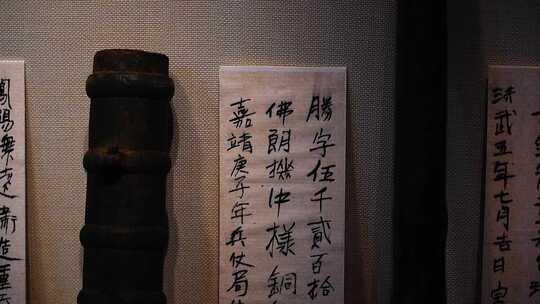 洪武五年七月吉日宝
勝字伍千貳百拾
佛朗機中樣銅
嘉靖庚子年兵仗局
鳳陽衛造重